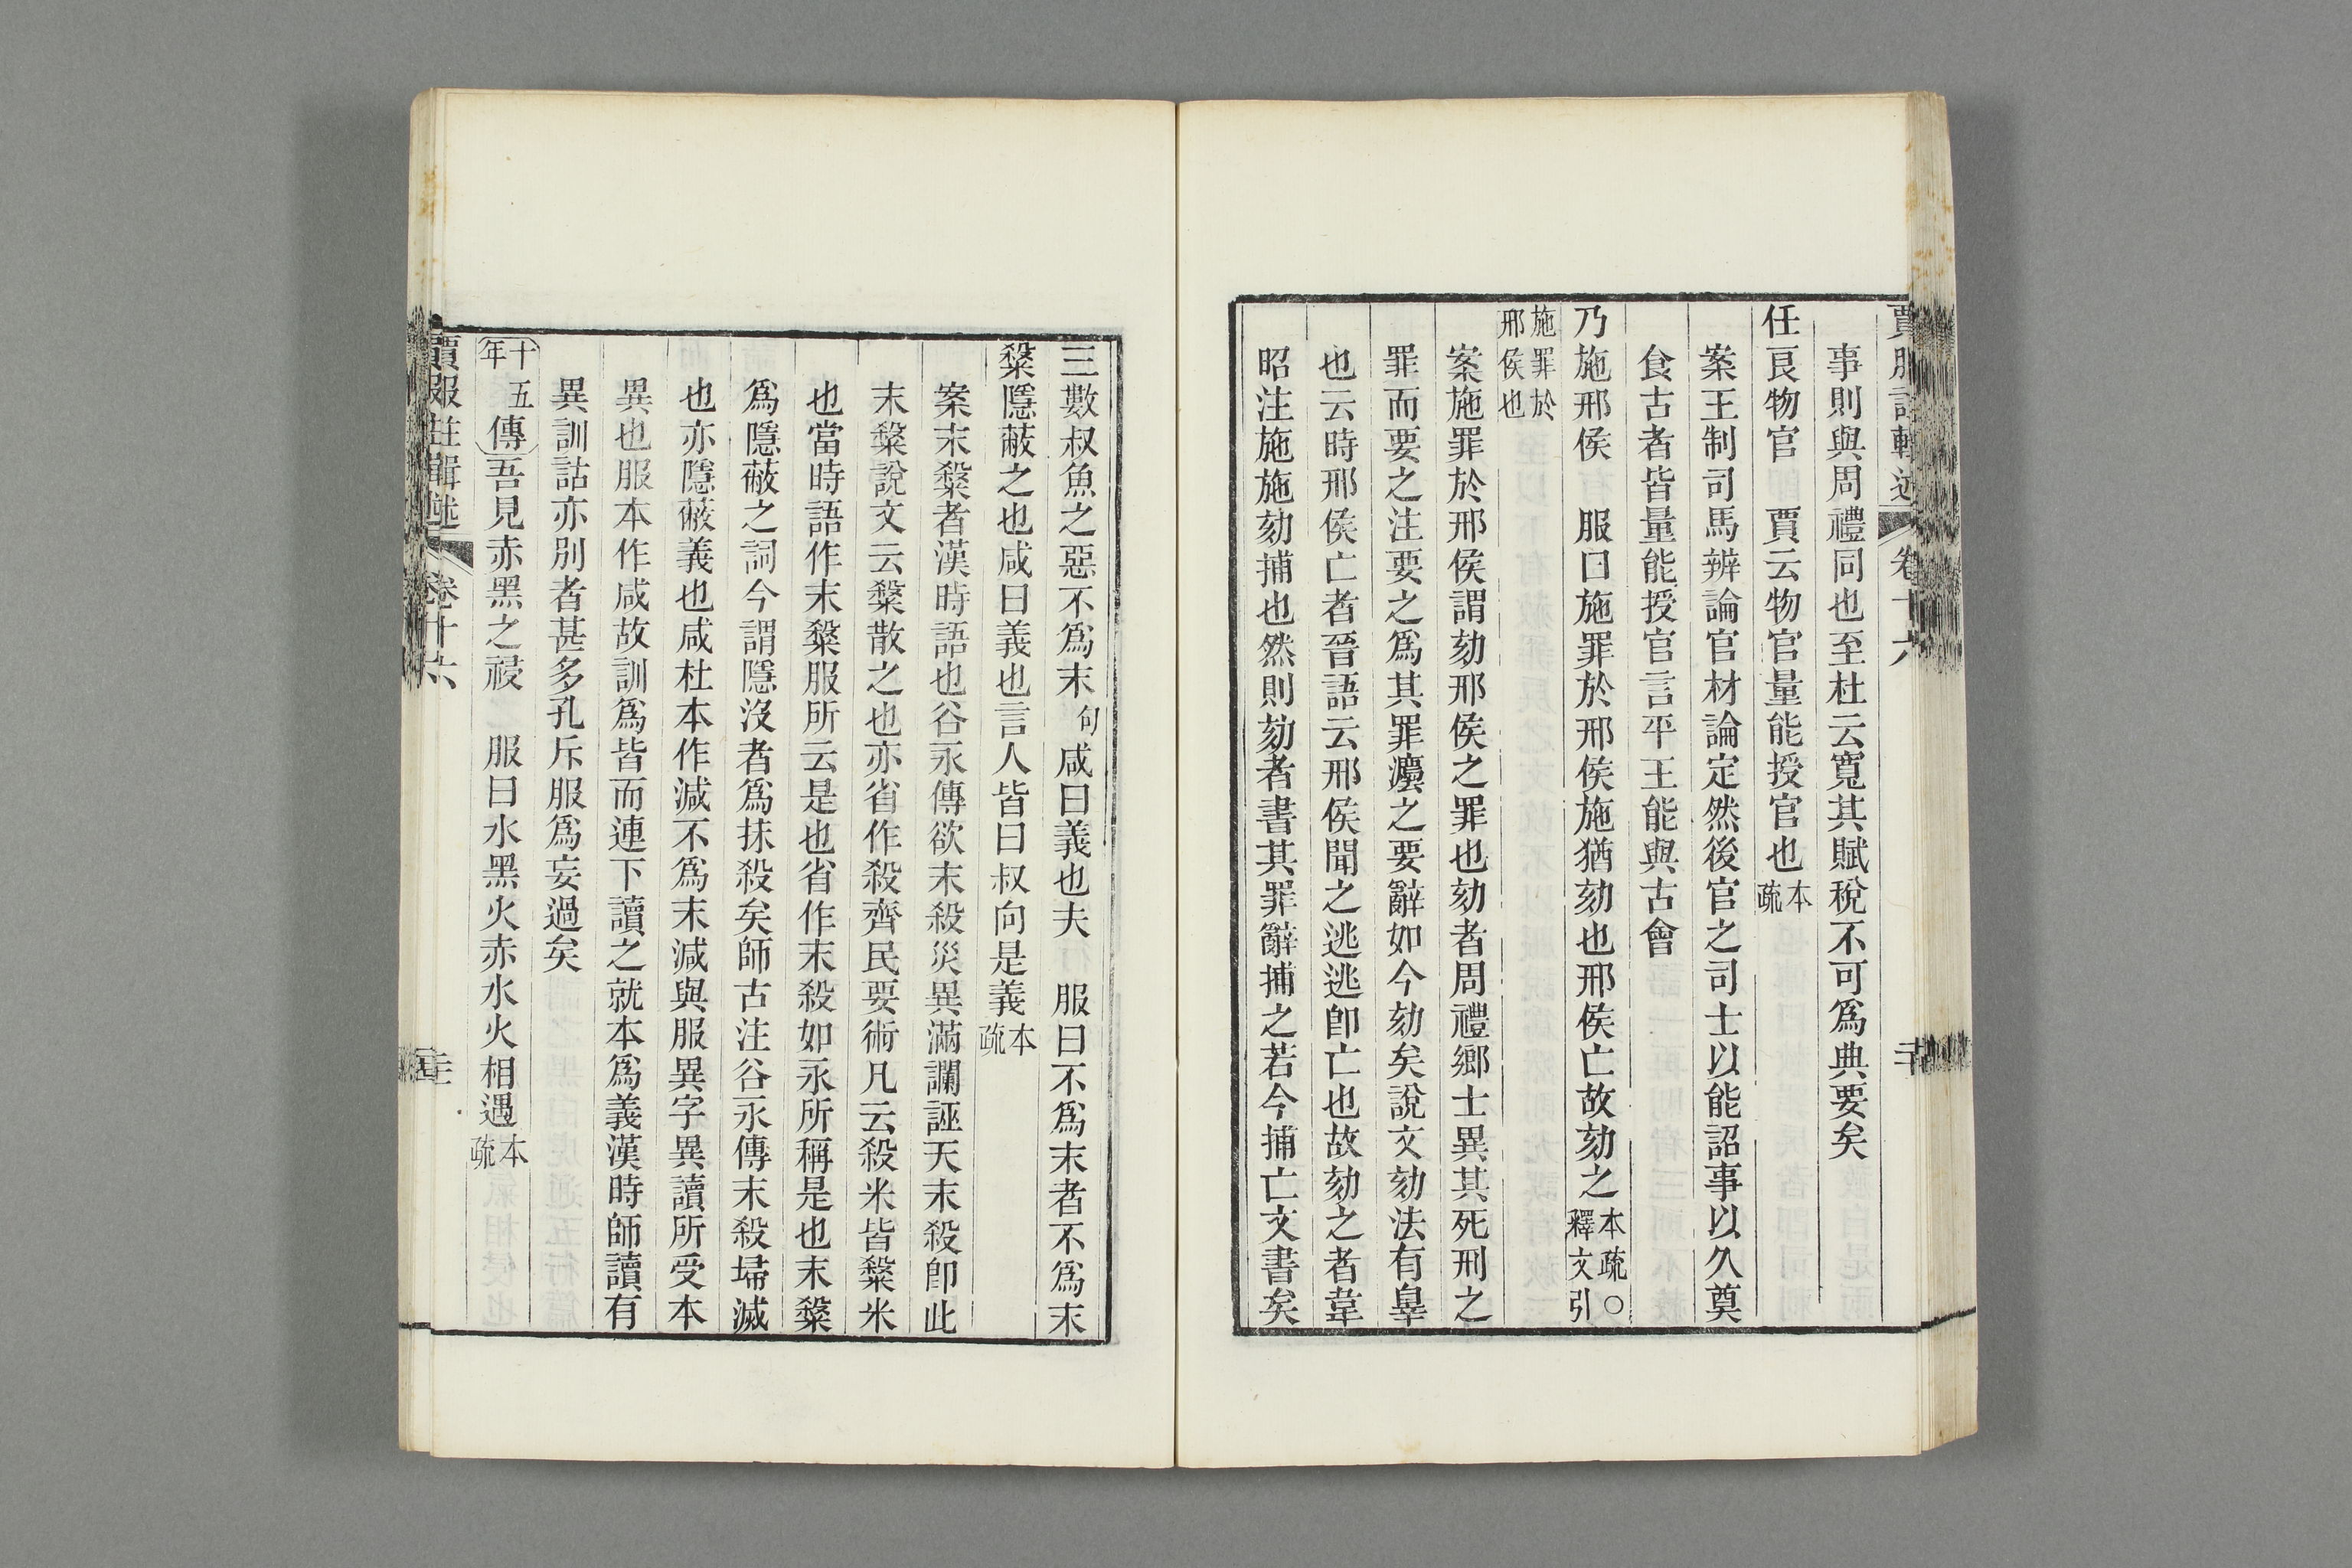 事則與周禮同也至杜云寬其賦稅不可爲典要矣
任良物官　賈云物官量能授官也本疏
案王制司馬辨論官材論定然後官之司士以能詔事以久奠
食古者皆量能授官言平王能與古會
乃施邢侯　服曰施罪於邢侯施猶劾也邢侯亡故劾之本疏○釋文引
施罪於邢侯也
案施罪於邢侯謂劾邢侯之罪也劾者周禮鄉士異其死刑之
罪而要之注要之爲其罪灋之要辭如今劾矣說文劾法有辠
也云時邢侯亡者晉語云邢侯聞之逃逃卽亡也故劾之者韋
昭注施施劾捕也然則劾者書其罪辭捕之若今捕亡文書矣
三數叔魚之惡不爲末句咸曰義也夫　服曰不爲末者不爲末
糳隱蔽之也咸曰義也言人皆曰叔向是義本疏
案末糳者漢時語也谷永傳欲末殺災異滿讕誣天末殺卽此
末糳說文云糳散之也亦省作殺齊民要術凡云殺米皆糳米
也當時語作末糳服所云是也省作末殺如永所稱是也末糳
爲隱蔽之詞今謂隱沒者爲抹殺矣師古注谷永傳末殺埽滅
也亦隱蔽義也咸杜本作減不爲末減與服異字異讀所受本
異也服本作咸故訓爲皆而連下讀之就本爲義漢時師讀有
異訓詁亦別者甚多孔斥服爲妄過矣
十五年傳吾見赤黑之祲　服曰水黑火赤水火相遇本疏
賈服注輯述　卷十六